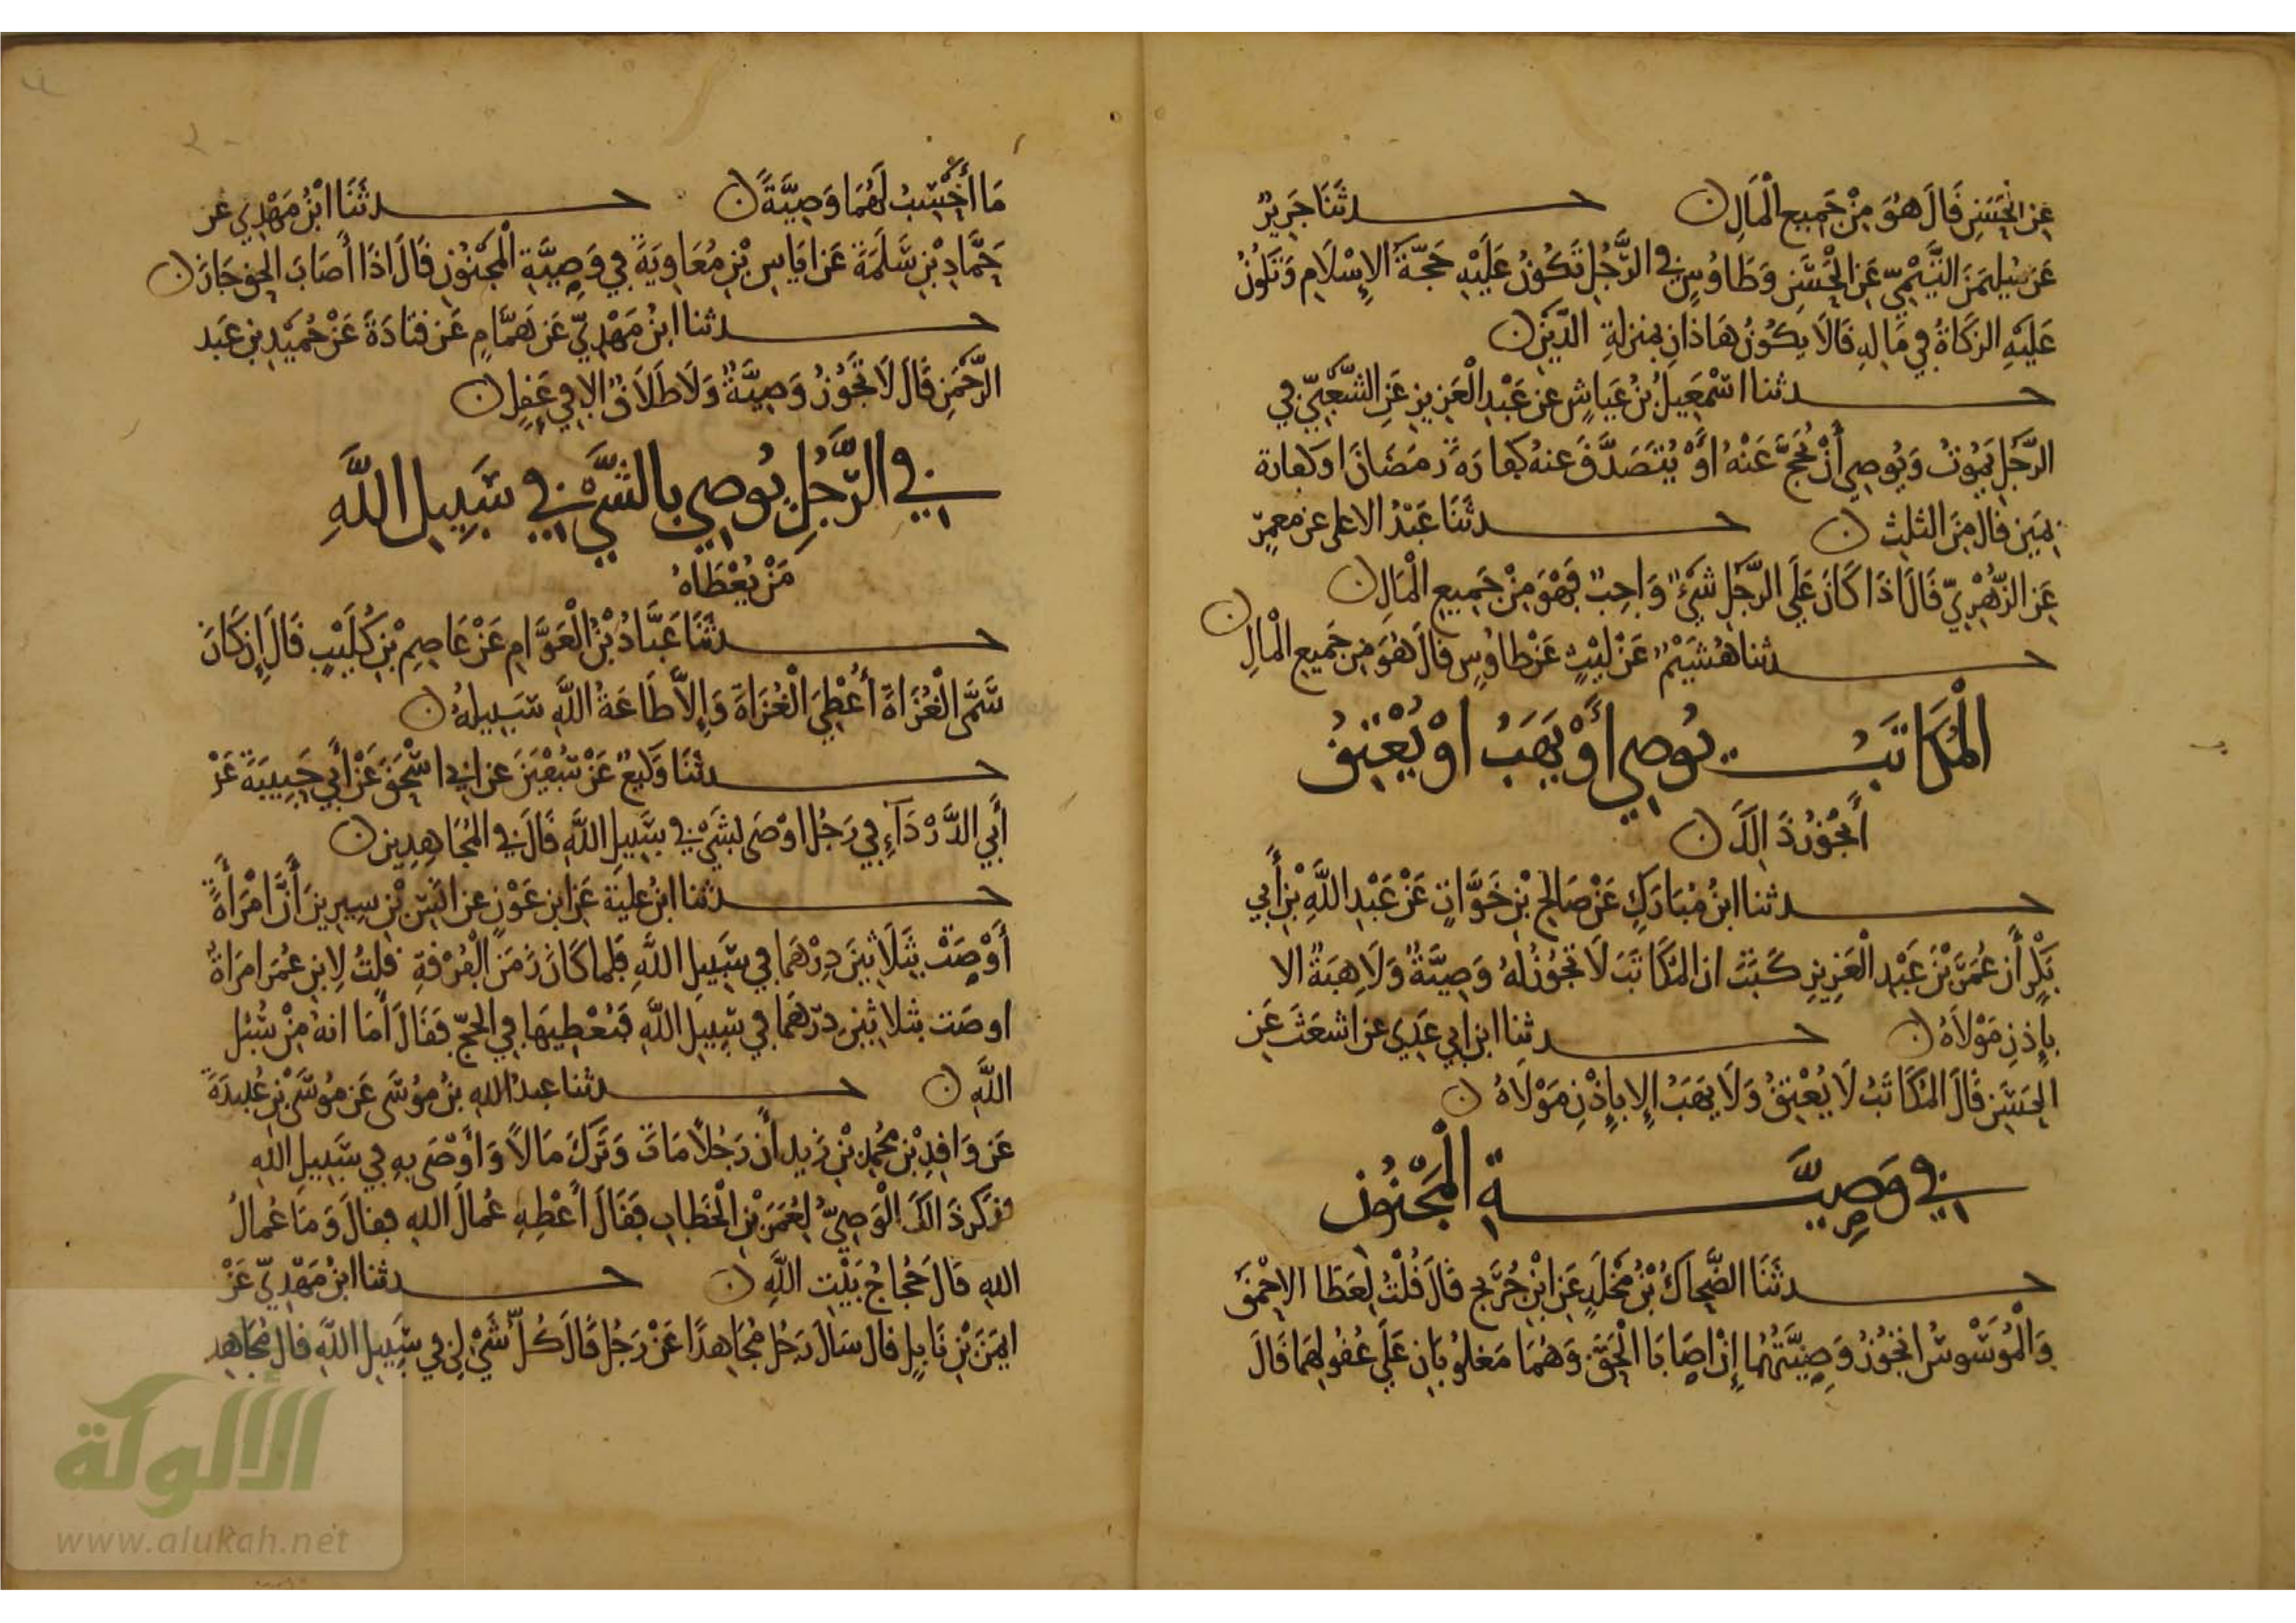 عَنِ الْحَسَنِ قَالَ هُوَ مِنْ جَمِيعِ الْمَالِ ن حدثَنَا جَرِيرٌ
عَن سُليمَنَ التَّيْمِيّ عَنِ الْحَسَنِ وَطَاوُسٍ فِي الرَّجُلِ تَكُونُ عَلَيْهِ حَجَّةُ الإِسْلَامِ وَتَكُونُ
عَلَيْهِ الزكَاةُ فِي مَالِهِ قَالَا يَكُونُ هَاذَانِ بِمنزلةِ الدَّيْنِ ن
حدثنا اسْمَعِيلُ بْنُ عَيَاشٍ عَنْ عَبْدِ الْعَزِيزِ عَنِ الشَّعْبِيّ فِي
الرَّجُلِ يَمُوتُ وَيُوصِي أَنْ يُحَجَّ عَنْهُ أَوْ يُتَصَدَّقَ عنهُ كفارَةَ رَمَضَانَ او كفارة
يَمِينٍ قال مِنَ الثلثِ ن حدثَنَا عَبْدُ الاعلى عن معمرٍ
عَنِ الزُّهْرِيِّ قَالَ اذَا كَانَ عَلَى الرَّجُلِ شَيْءٌ وَاجِبٌ فَهْوَ مِنْ جَمِيعِ الْمَالِ ن
حدثنا هُشَيْمٌ عَنْ لَيْثٍ عَنْ طاوُسٍ قالَ هُوَ مِن جَمِيعِ الْمَالِ ن
الْمُكَاتَبُ يُوصِي أَوْ يَهَبُ اوْ يُعْتِقُ
أَيَجُوزُ ذَالِكَ ن
حدثنا ابنُ مُبَارَكٍ عَنْ صَالِحِ بْنِ خَوَّاتٍ عَنْ عَبْدِ اللَّهِ بْنِ أَبِي
بَكْرٍ أَن عُمَرَ بْنَ عَبْدِ الْعَزِيزِ كَتَبَ ان المُكَاتَبَ لَا تَجُوزُ لهُ وَصِيَّةٌ وَلَا هِبَةٌ الا
بِإِذنِ مَوْلَاهُ ن حدثنا ابن ابي عَدِي عن اشعَثَ عَنِ
الحَسَنِ قَالَ المُكَاتَبُ لَا يُعْتِقُ وَلَا يَهَبُ إلا بِإِذْنِ مَوْلَاهُ ن
فِي وَصِيَّةِ الْمَجْنُونِ
حدثَنَا الضَّحاكُ بْنُ مَخْلَدٍ عَنِ ابْنِ جُرَيْجٍ قَالَ قُلْتُ لِعَطَا الاحْمَقُ
وَالْمُوَسْوَسُ اتجُوزُ وَصِيَّتُهُما إِنْ اصَابَا الْحَقَّ وَهُمَا مَغلُوبَانِ عَلَى عُقُولِهِمَا قَالَ
مَا أَحْسِبُ لَهُمَا وَصِيَّةً ن حدثَنَا ابْنُ مَهْدِي عَن
حَمَّادِ بْنِ سَلَمَةَ عَن ايَاسِ بْنِ مُعَاوِيَةَ فِي وَصِيَّةِ الْمَجْنُونِ قَالَ اذَا أَصَابَ الحق جَازَ ن
حدثنا ابنُ مَهْدِيّ عَن هَمَّامٍ عَن قتادَةَ عَنْ حُمَيْدِ بنِ عَبد
الرَّحْمَنِ قَالَ لَا تَجُوزُ وَصِيَّةٌ وَلَا طَلَاقٌ الا فِي عَقلٍ ن
فِي الرَّجُلِ يُوصِي بِالشَّيْءِ فِي سَبِيلِ اللَّهِ
مَنْ يُعْطَاهُ
حدثَنَا عَبَّادُ بْنُ الْعَوَّامِ عَنْ عَاصِمِ بْنِ كُلَيْبٍ قَالَ إِن كَانَ
سَمَّى الْغُزَاةَ أُعْطِيَ الْغُزَاةَ وَإِلَّا طَاعَةُ اللَّهِ سَبِيلهُ ن
حدثَنَا وَكِيعٌ عَنْ سُفْيَنَ عن ابِي اسْحَقَ عَنْ أَبِي حَبِيبَةَ عَنْ
أَبِي الدَّرْدَآءِ فِي رَجُلٍ اوْصَى بشَيْءٍ فِي سَبِيلِ اللَّهِ قَالَ فِي المُجَاهِدِينَ ن
حدثنا ابنُ عليَةَ عَن ابنِ عَوْنٍ عن انَسِ بْنِ سِيرِينَ أَنَّ امْرَأَةً
أَوْصَتْ بِثَلَاثِينَ دِرْهَمًا فِي سَبِيلِ اللَّهِ فَلما كَانَ زَمَنَ الْفُرْقَةِ قلتُ لِابنِ عُمَرَ امرَاةٌ
اوصَت بثلاثِينَ درهَمًا فِي سَبِيلِ اللَّهِ فَنُعْطِيهَا فِي الحَجّ فَقَالَ أَمَا انهُ مِنْ سُبُلِ
اللَّهِ ن حدثنا عبدُ اللهِ بنُ مُوسَى عَن مُوسَى بنِ عُبيدَةَ
عَن وَاقِدِ بْنِ مُحَمد بْنِ زيد أَن رَجُلًا مَاتَ وَتَرَكَ مَالًا وَأَوْصَى بِهِ فِي سَبِيلِ اللهِ
فذكر ذَالكَ الْوَصِيُّ لِعُمَرَ بْنِ الْخَطابِ فَقَالَ أَعْطِهِ عُمالَ اللهِ فقالَ وَمَا عُمالُ
اللهِ قَالَ حُجَاجُ بَيْتِ اللَّهِ ن حدثنا ابنُ مَهْدِيّ عَنْ
ايمَنَ بْنِ نَابِلٍ قال سَالَ رَجُل مُجَاهِدًا عَنْ رَجُلٍ قَالَ كُلُّ شَيْءٍ لِي فِي سَبِيلِ اللَّهِ قال مُجَاهِد
الألوكة
www.alukah.net